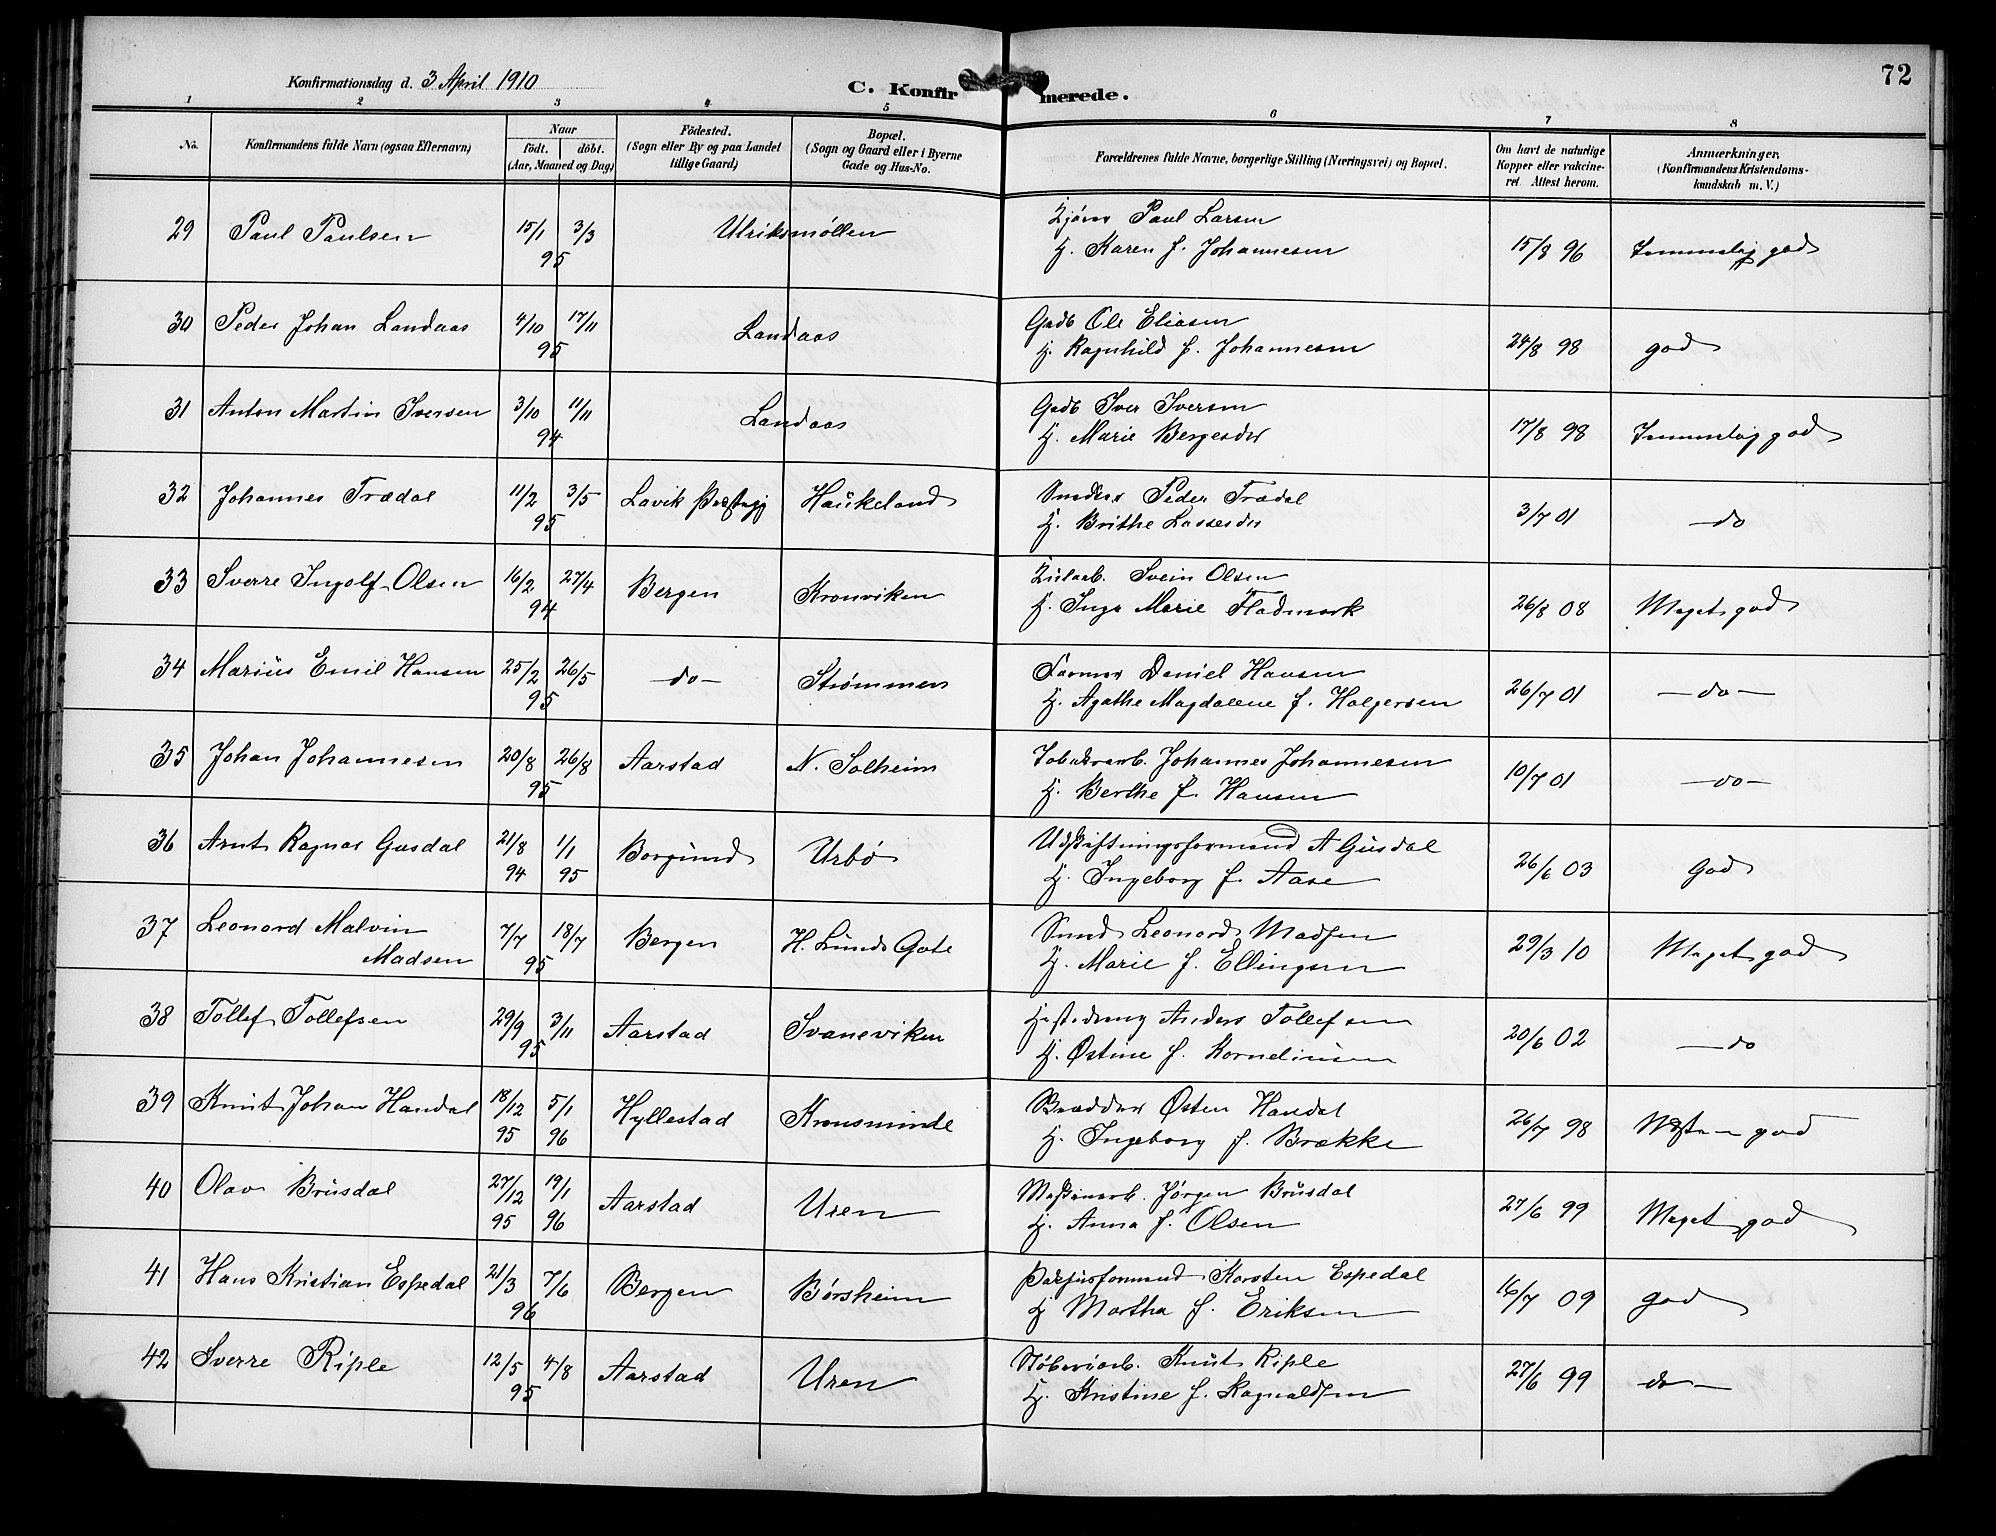 72
Konfirmationsdag d. 3 April 1910
C. Konfirmerede.
1 2 3 4 5 6 7 8
No. Konfirmandens fulde Navn (ogsaa Efternavn) Naar födt. döbt. (Aar, Maaned og Dag) Födested. (Sogn eller By og paa Landet tillige Gaard) Bopæl. (Sogn og Gaard eller i Byerne Gade og Hus-No. Forældrenes fulde Navne, borgerlige Stilling (Næringsvei) og Bopæl. Om havt de naturlige Kopper eller vakcineret Attest herom. Anmærkninger. (Konfirmandens Kristendomskundskab m. V.)
29 Paul Paulsen 15/1 3/3 95 Ulriksmøllen Paul Larsen 15/8 96 Temmelig god
H. Karen f. Johannesen
30 Peder Johan Landaas 4/10 17/11 95 Landaas Gadb Ole Eliasen 24/8 98 god
H. Ragnhild f. Johannesen
31 Anton Martin Iversen 3/10 11/11 94 Landaas Gadb Iver Iversen 17/8 98 Temmelig god
H. Marie Bergesdr
32 Johannes Trædal 11/2 3/5 95 Lavik Præstegj Haukeland Peder Trædal 3/7 01 - do
H. Brithe Lassesdr
33 Sverre Ingolf Olsen 16/2 27/4 94 Bergen Kronviken Svein Olsen 26/8 08 Meget god
H. Inga Marie Fladmark
34 Marius Emil Hansen 25/2 26/5 95 - do - Strømmen Farmer Daniel Hansen 26/7 01 - do -
H. Agathe Magdalene f. Holgersen
35 Johan Johannesen 20/8 26/8 95 Aarstad N. Solheim Tobaksarb. Johannes Johannesen 10/7 01 - do -
H. Berthe f. Hansen
36 Arnt Ragnar Gusdal 21/8 94 1/1 95 Borgund Urbø Udskiftningsformand A Gusdal 26/6 03 God
H. Ingeborg f. Aase
37 Leonard Malvin Madsen 7/7 18/7 95 Bergen H. Lunds Gate Smed Leonard Madsen 29/3 10 Meget god
H. Marie f. Ellingsen
38 Tollef Tollefsen 29/9 3/11 95 Aarstad Svaneviken Anders Tollefsen 20/6 02 - do
H. Østine f. Korneliusen
39 Knut Johan Handal 18/12 95 5/1 96 Hyllestad Kronsminde Østen Handal 26/7 98 Næsten god
H. Ingeborg f. Brække
40 Olav Brusdal 27/12 95 19/1 96 Aarstad Uren Maskinarb. Jørgen Brusdal 27/6 99 Meget god
H. Anna f. Olsen
41 Hans Kristian Espedal 21/3 7/6 96 Bergen Børsheim Karsten Espedal 16/7 09 god
H Martha f. Eriksen
42 Sverre Riple 12/5 4/8 95 Aarstad Uren Støberiarb. Knut Riple 27/6 99 do -
H. Kristine f. Ragnaldsen